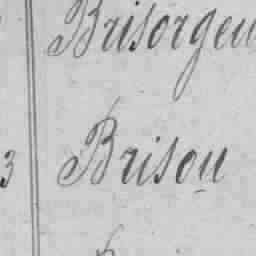 Brisorgeu
3 Brisou